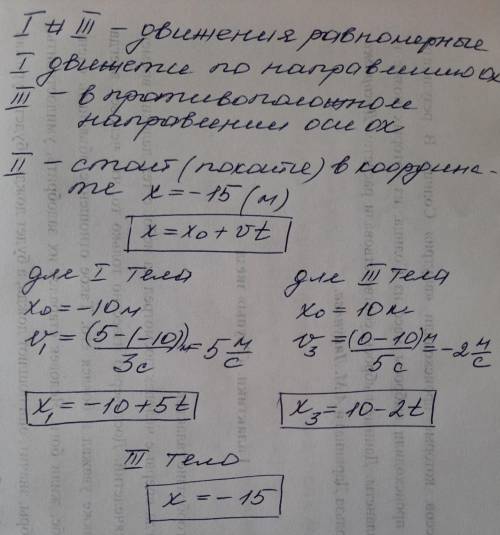 I и III – движения равномерные
I движется по направлению ох
III – в противоположном
направлении оси ох
II – стоит (покоится) в координа-
те x = -15 (м)
x = x0 + vt
для I тела
x0 = -10 м
v1 = (5-(-10))м / 3с = 5 м/с
x1 = -10 + 5t
для III тела
x0 = 10 м
v3 = (0-10)м / 5с = -2 м/с
x3 = 10 - 2t
III тело
x = -15